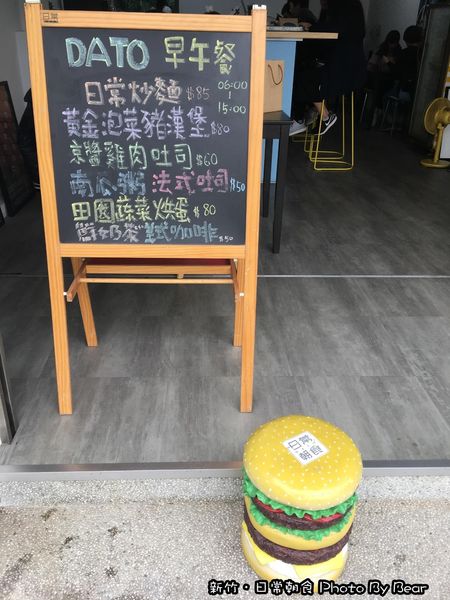 日常
DATO 早午餐
06:00
|
15:00
日常炒麵 $85
黃金泡菜豬漢堡 $80
京醬雞肉吐司 $60
南瓜粥 法式吐司 $50
田園蔬菜烘蛋 $80
奶茶 美式咖啡 $50
日常
朝食
新竹・日常朝食 Photo By Bear